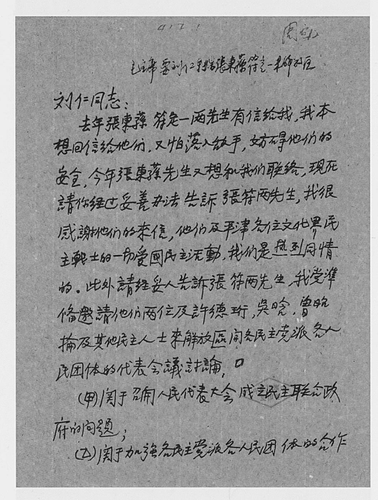 刘仁同志：
去年張東蓀 符定一兩先生有信給我，我本
想回信給他们，又怕落入敌手，妨碍他們的
安全，今年張東蓀先生又想和我們联络，現在
請你经过妥善办法 告訴 張符兩先生，我很
感謝他們的来信，他們及平津各位文化界民
主戰士的一切愛國民主活動，我們是热烈同情
的。此外請经妥人告訴張符两先生，我党準
備邀請他們两位及許德珩，吳晗，曾昭
掄及其他民主人士来解放區同各民主党派各人
民团体的代表会議討論。
(甲)関于召開人民代表大会 成立民主联合政
府的问题；
(乙)関于加強各民主党派各人民团体的合作